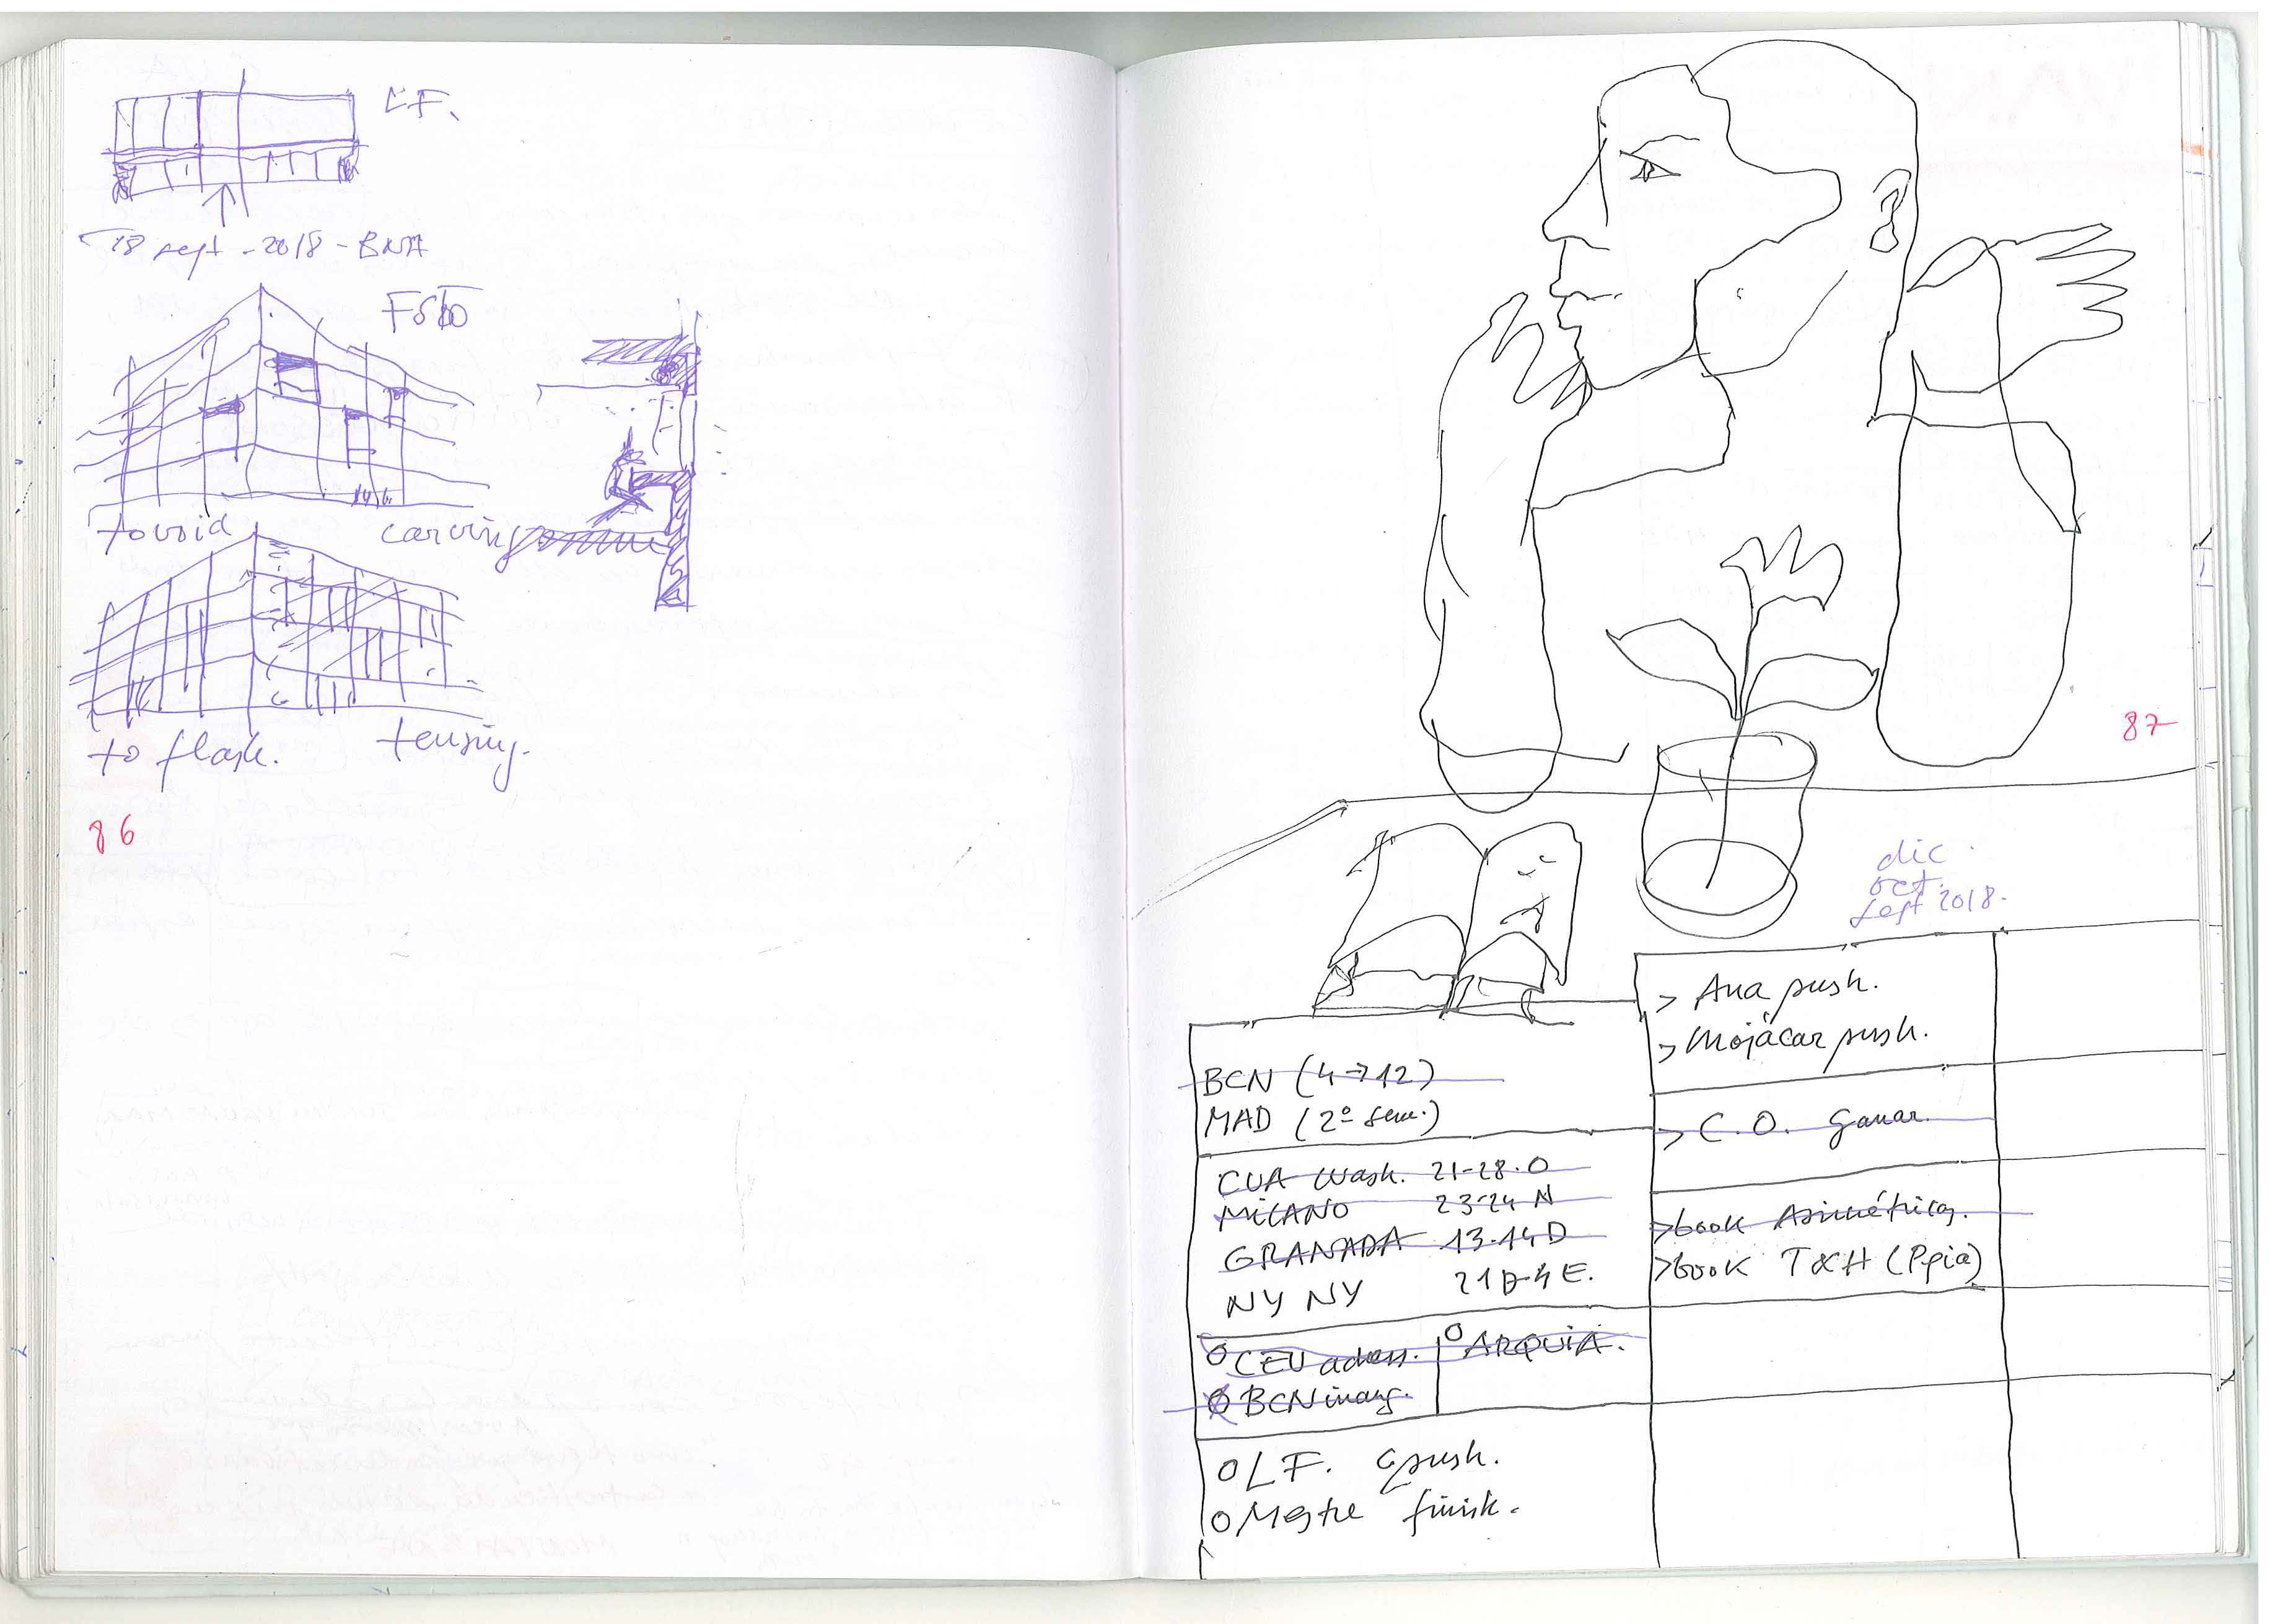 L.F.
18 sept - 2018 - BNA
to void
carving
to flash.
tensing.
86
87
dic
oct.
sept 2018.
> Ana push.
> Mojácar push.
> C.O. ganar.
> book Asimétricas.
> book TXH (Ppia)
BCN (4→12)
MAD (2º sem.)
CUA Wash. 21-28.O
MILANO 23-24 N
GRANADA 13-14 D
NY NY 21D-4E.
O CEU adess. O ARQUIA.
O BCN inaug.
O L F. push.
O Mestre finish.